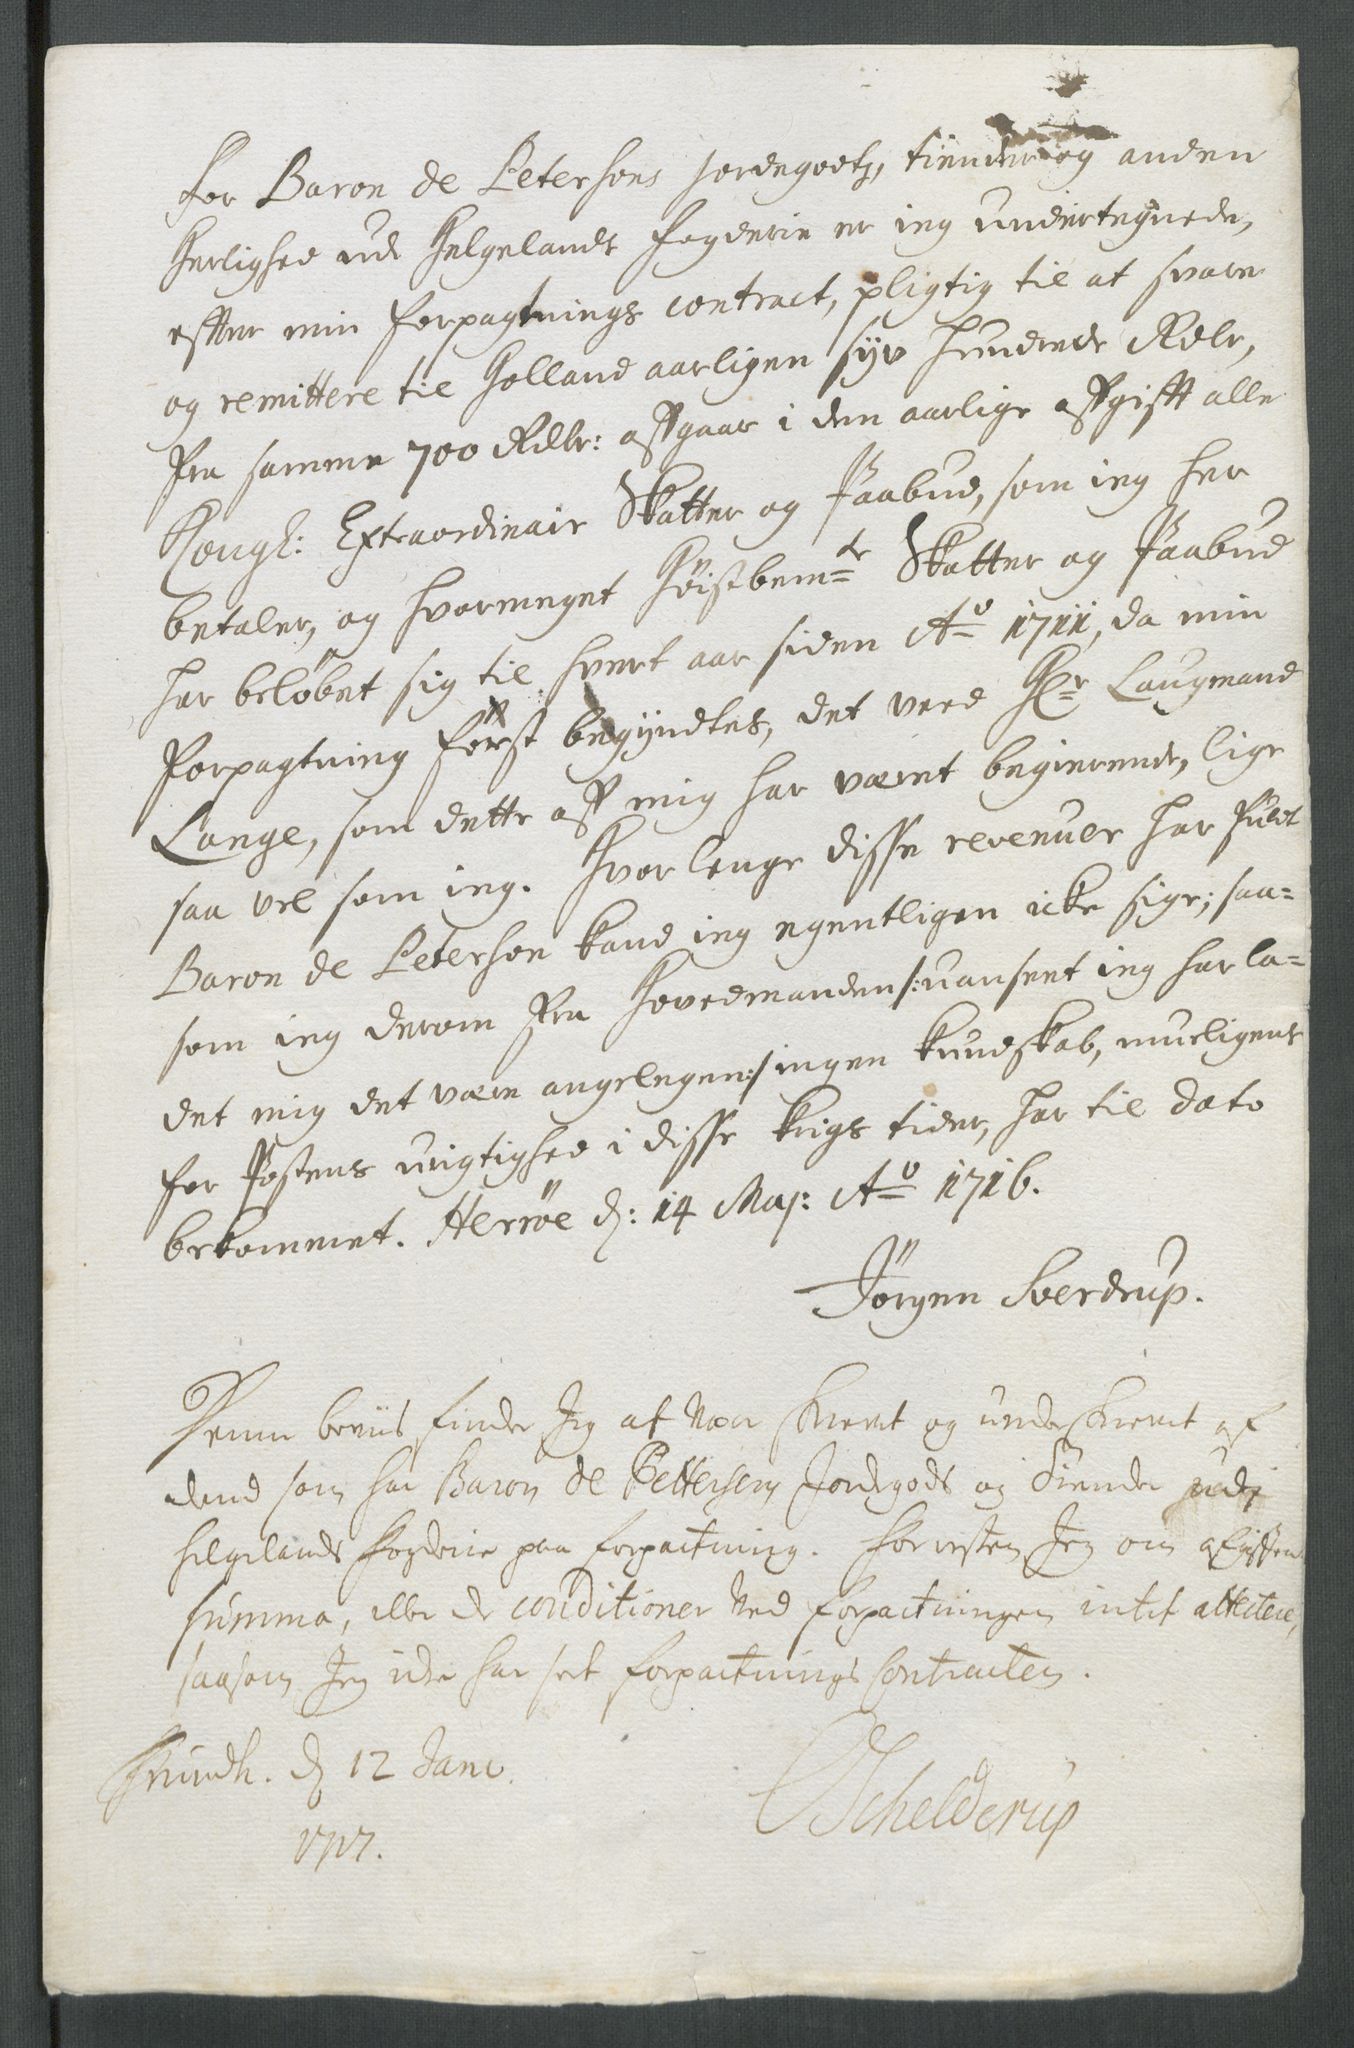 For Baron de Petersons jordegodtz, tiender og anden
Herlighed udj Helgelands fogderie er ieg undertegnede,
effter min forpagtnings contract, pligtig til at svare
og remittere til Holland aarligen syv hundrede Rdlr,
Fra samme 700 Rdlr: affgaar i den aarlige affgifft alle
Kongl: Extraordinair Skatter og Paabud, som ieg her
betaler, og hvormeget Høistbem.te Skatter og Paabud
har beløbet sig til hvert aar siden Ao 1711, da min
Forpagtning først begyndtes, det veed Hr Laugmand
Lange, som dette aff mig har været begierende, lige
saa vel som ieg. Hvorlenge disse revenuer har fuldt
Baron de Peterson kand ieg egentligen icke sige; saa=
som ieg derom fra Hovedmanden /:uanseet ieg har la=
det mig det være angelegen:/ ingen kundskab, mueligens
for Postens urigtighed i disse krigs tider, har til dato
bekommet. Herrøe d: 14 Maj: Ao 1716.
Jörgen Sverdrup.
Denne beviis finder Jeg at være skrevet og underskrevet af
dend som har Baron de Pettersens Jordegods og Tiender udj
Helgelands fogderie paa forpactning. Forresten Jeg om afgifften
summa, eller de conditioner ved forpactningen intet attestere,
saasom Jeg icke har seet forpactnings Contracten.
Trundh. d 12 Janv.
1717.
Schelderup